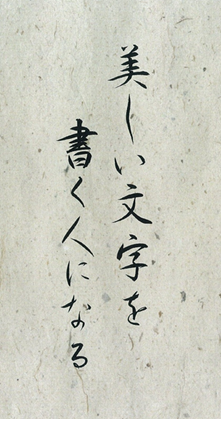 美しい文字を
書く人になる